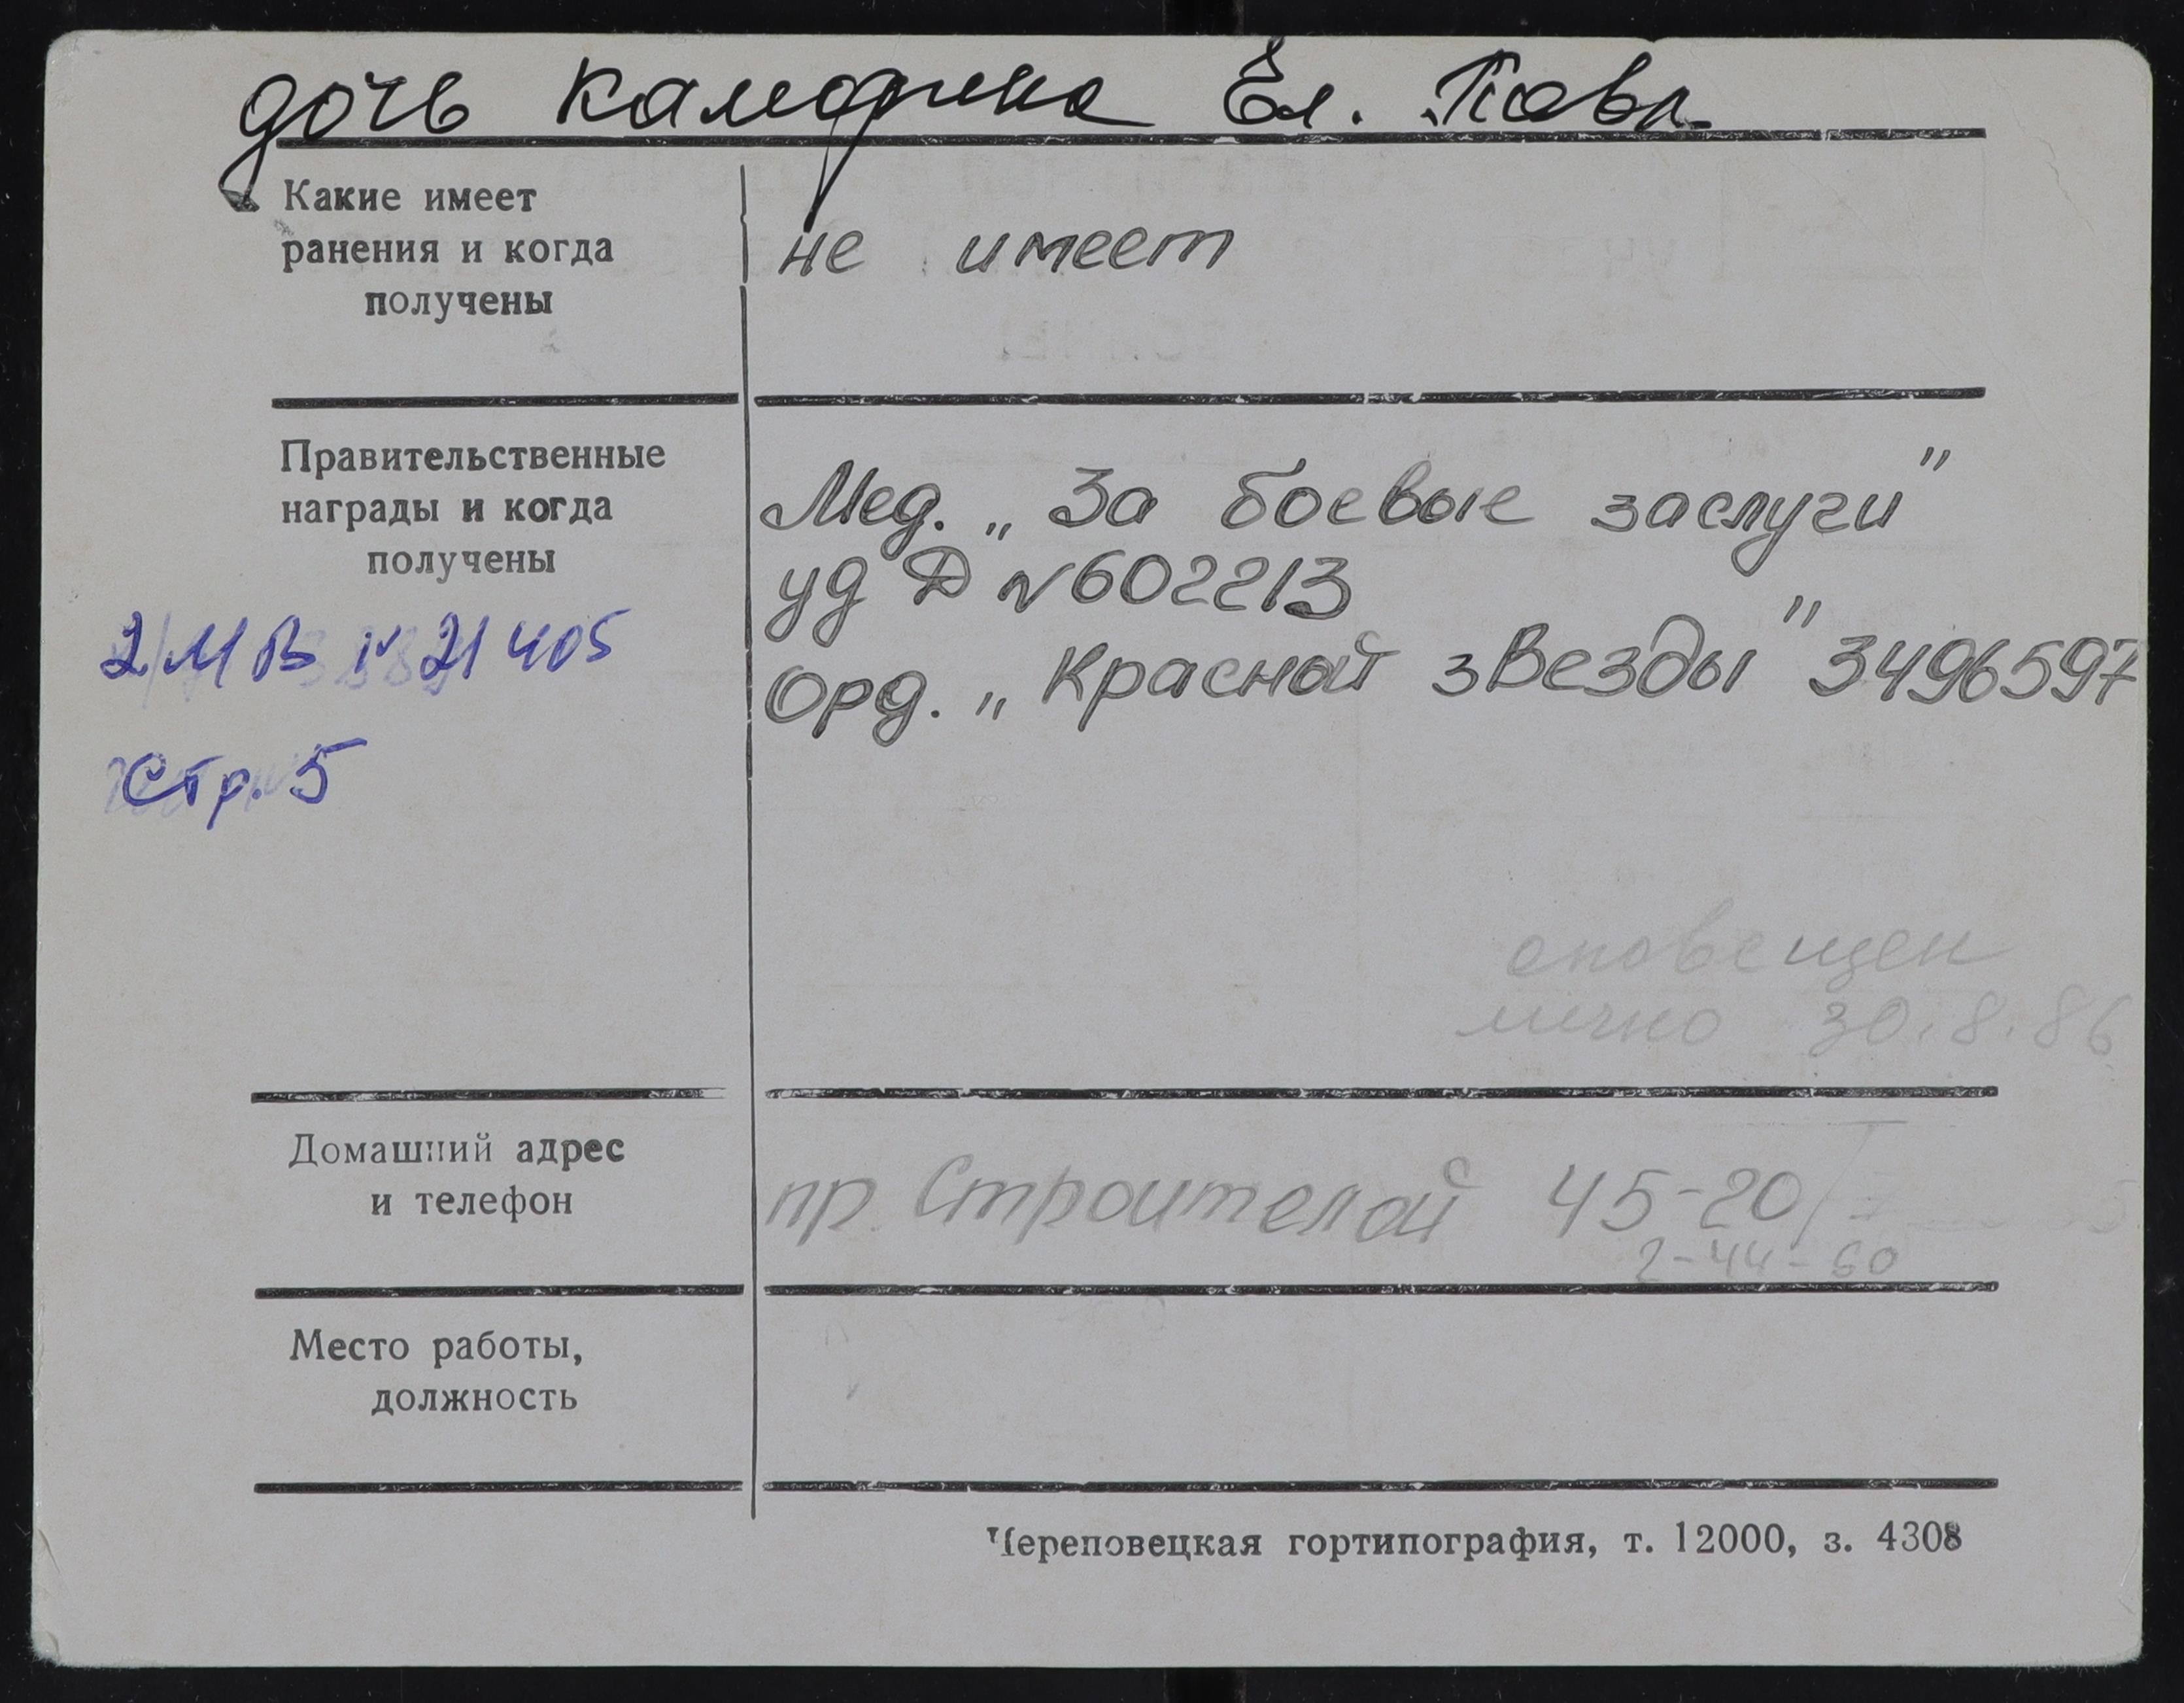 дочь Каморина Ел. Павл.
Какие имеет
ранения и когда
получены
не имеет
Правительственные
награды и когда
получены
Мед. „За боевые заслуги"
уд Д №602213
Орд. „Красной звезды" 3496597
2 МВ № 21405
Стр. 5
оповещен
лично 30.8.86
Домашний адрес
и телефон
пр. Строителей 45-20
2-44-60
Место работы,
должность
Череповецкая гортипография, т. 12000, з. 4308